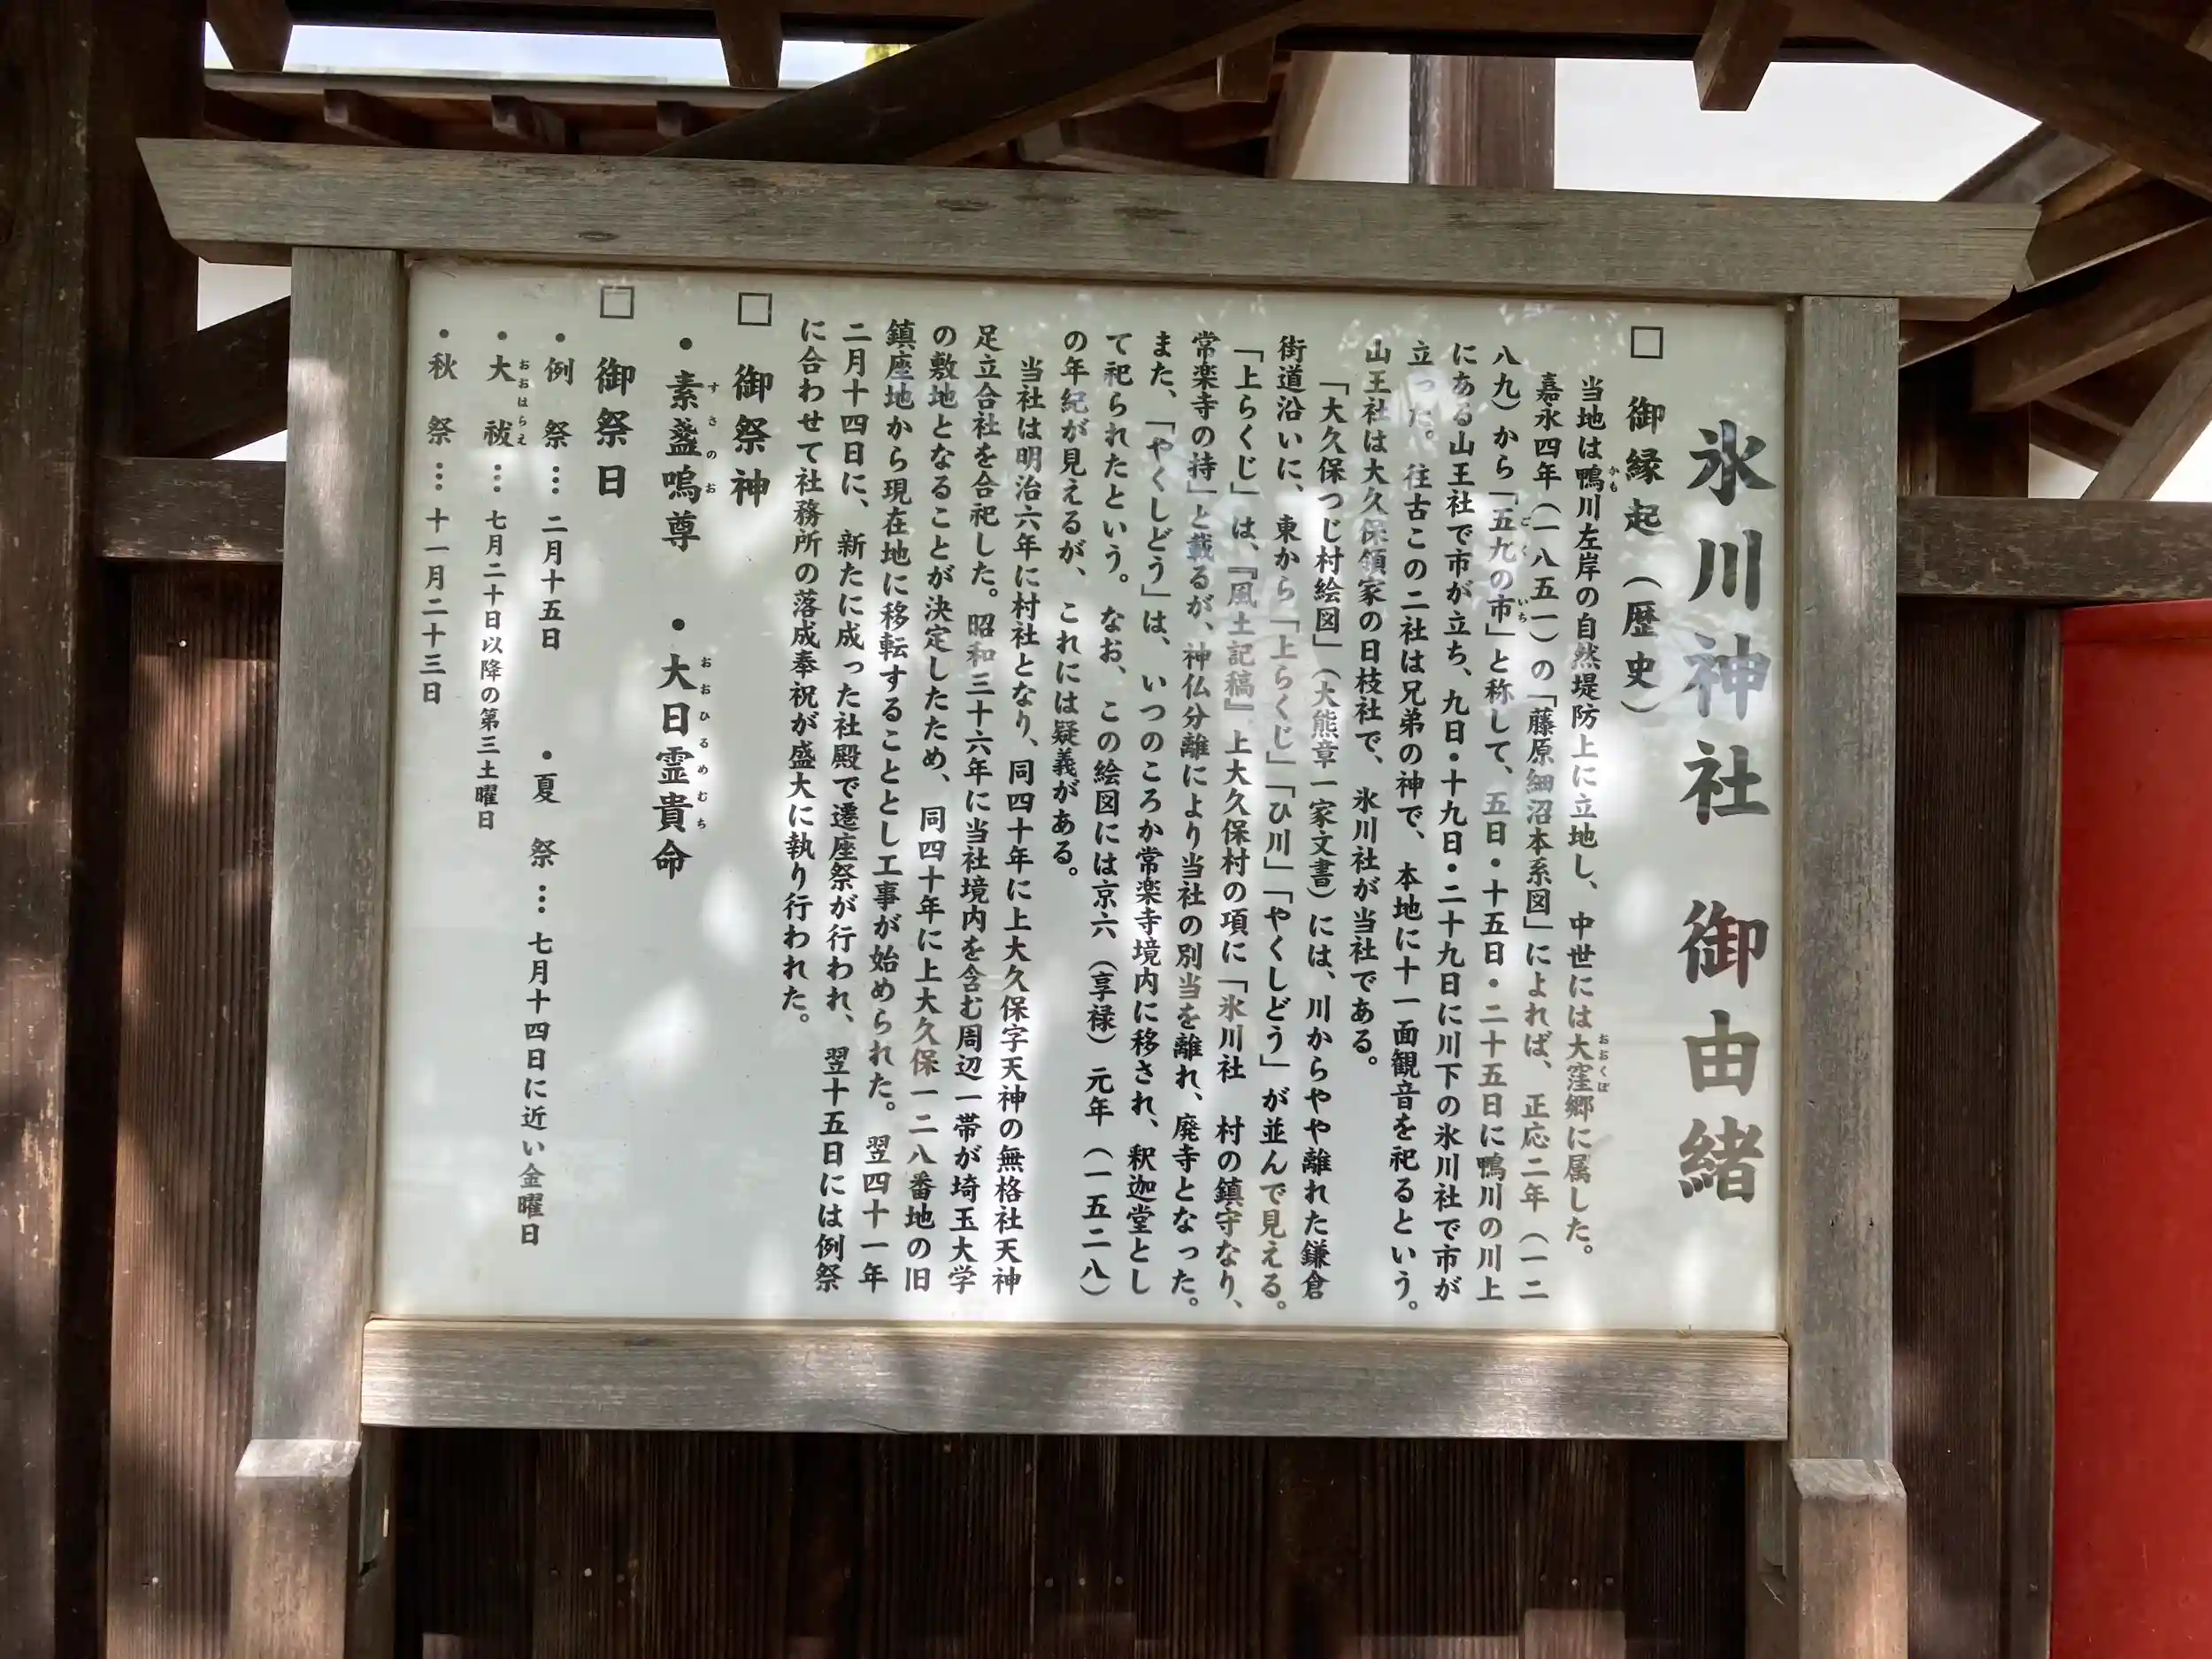 氷川神社 御由緒
□ 御縁起（歴史）
当地は鴨川左岸の自然堤防上に立地し、中世には大窪郷に属した。
かも
おおくぼ
嘉永四年（一八五一）の「藤原細沼本系図」によれば、正応二年（一二
八九）から「五九の市」と称して、五日・十五日・二十五日に鴨川の川上
ごく いち
にある山王社で市が立ち、九日・十九日・二十九日に川下の氷川社で市が
立った。往古この二社は兄弟の神で、本地に十一面観音を祀るという。
山王社は大久保領家の日枝社で、氷川社が当社である。
「大久保つじ村絵図」（大熊章一家文書）には、川からやや離れた鎌倉
街道沿いに、東から「上らくじ」「ひ川」「やくしどう」が並んで見える。
「上らくじ」は、『風土記稿』上大久保村の項に「氷川社 村の鎮守なり、
常楽寺の持」と載るが、神仏分離により当社の別当を離れ、廃寺となった。
また、「やくしどう」は、いつのころか常楽寺境内に移され、釈迦堂とし
て祀られたという。なお、この絵図には京六（享禄）元年（一五二八）
の年紀が見えるが、これには疑義がある。
当社は明治六年に村社となり、同四十年に上大久保字天神の無格社天神
足立合社を合祀した。昭和三十六年に当社境内を含む周辺一帯が埼玉大学
の敷地となることが決定したため、同四十年に上大久保一二八番地の旧
鎮座地から現在地に移転することとし工事が始められた。翌四十一年
二月十四日に、新たに成った社殿で遷座祭が行われ、翌十五日には例祭
に合わせて社務所の落成奉祝が盛大に執り行われた。
□ 御祭神
・素盞嗚尊 ・大日霊貴命
すさのお おおひるめむち
□ 御祭日
・例 祭…二月十五日 ・夏 祭…七月十四日に近い金曜日
・大 祓…七月二十日以降の第三土曜日
おおはらえ
・秋 祭…十一月二十三日